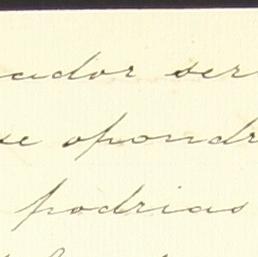 cador ser
se opondr
podrias